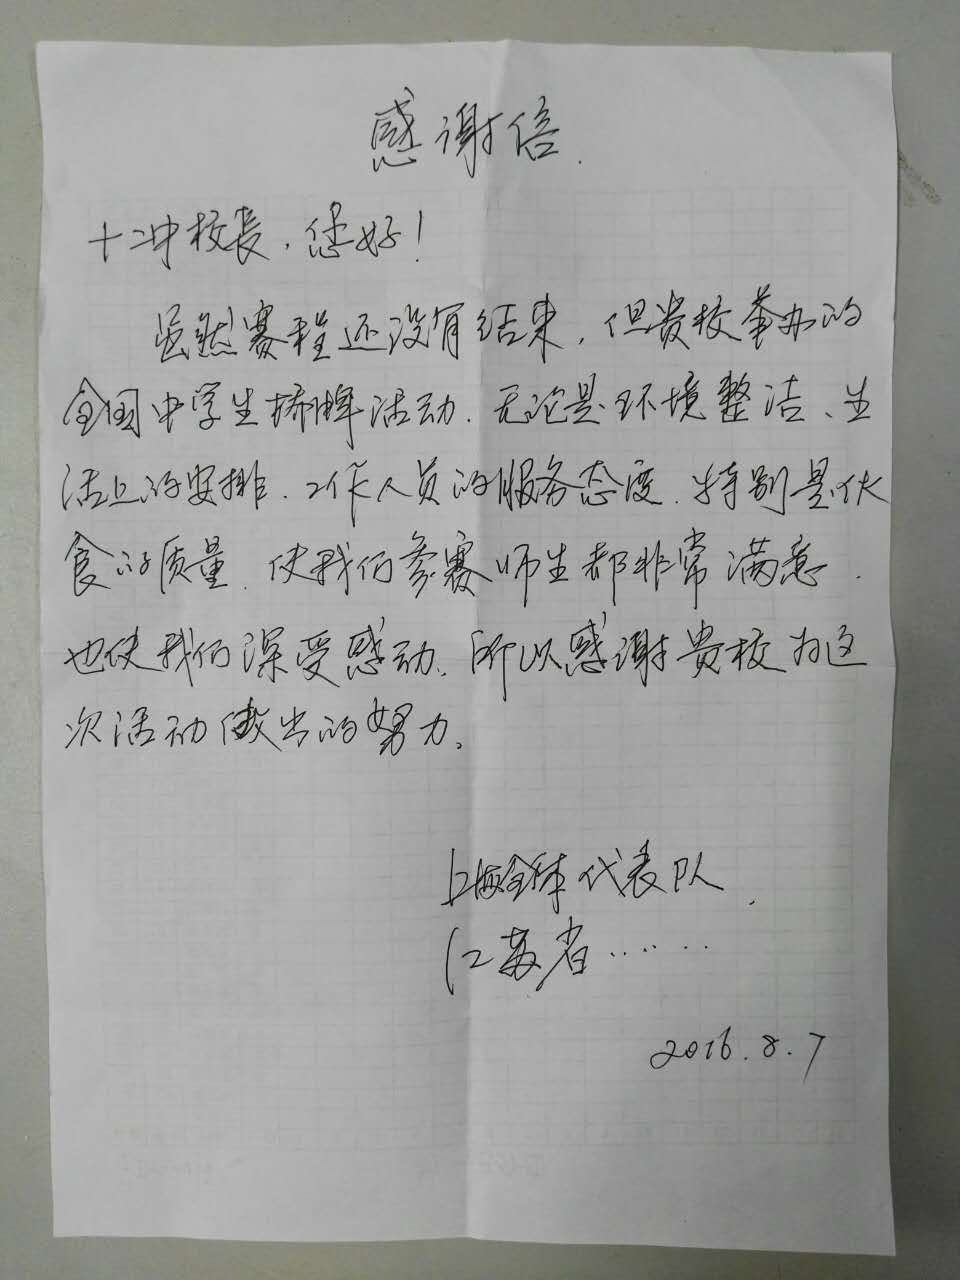 感谢信.
十二中校长，您好！
虽然赛程还没有结束，但贵校举办的
全国中学生桥牌活动.无论是环境整洁、生
活上的安排、工作人员的服务态度.特别是伙
食的质量.使我们参赛师生都非常满意.
也使我们深受感动.所以感谢贵校为这
次活动做出的努力.
上海全体代表队.
江苏省……
2016.8.7